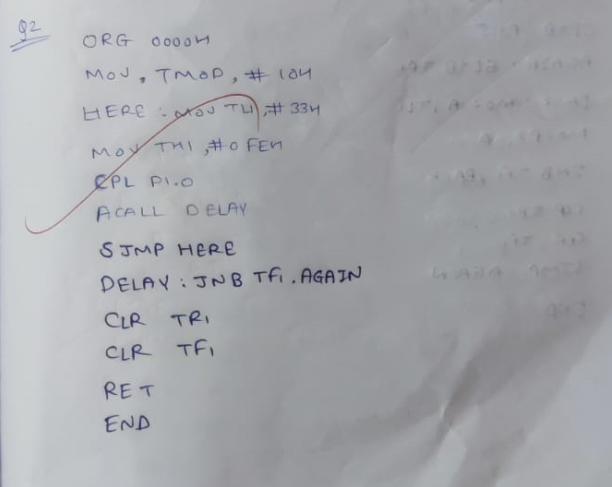 Q2
ORG 0000H
MOV, TMOD, # 10H
HERE : MOV TL1, # 33H
MOV TH1, #0FEH
CPL P1.0
ACALL DELAY
SJMP HERE
DELAY : JNB TF1 . AGAIN
CLR TR1
CLR TF1
RET
END